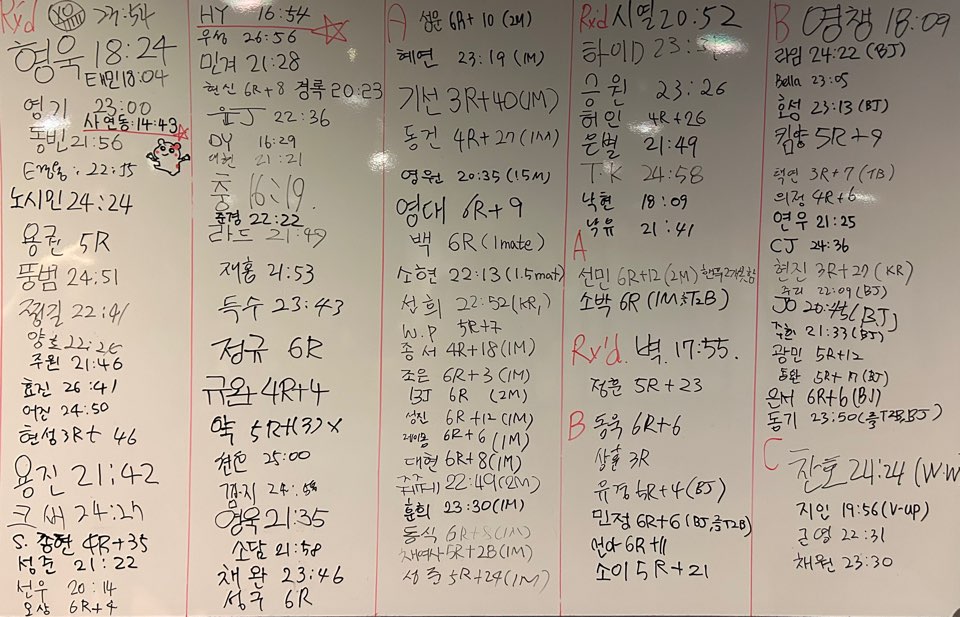 Rx'd
23:54
형욱 18:24
태민 18:04
영기 23:00
사연동:14:43
동빈 21:56
22:15
노시민 24:24
용권 5R
뚱범 24:51
찡길 22:41
양호 22:26
주원 21:46
효진 26:41
어진 24:50
현성 3R+ 46
용진 21:42
크새 24:27
S. 종현 4R+35
성준 21:22
선우 20:14
오상 6R+4
HY 16:54
우성 26:56
민겨 21:28
현신 6R+8 경록 20:23
윤J 22:36
DY 16:29
21:21
충 16:19.
준경 22:22
라드 21:49
재홍 21:53
득수 23:43
정규 6R
규완 4R+4
약 5R+(3)x
25:00
낌지
영욱 21:35
소담 21:58
채완 23:46
성구 6R
A
섬문 6R+10 (2M)
혜연 23:19 (1M)
기선 3R+40(1M)
동건 4R+27 (1M)
영원 20:35 (15M)
영대 6R+9
백 6R (1mate)
소현 22:13 (1.5mat)
섭희 22:52 (KR,)
W.P 5R+7
종서 4R+18(1M)
조은 6R+3 (1M)
BJ 6R (2M)
성진 6R+12 (1M)
레이몽 6R+6 (1M)
대현 6R+8(1M)
22:49(2M)
훈희 23:30(1M)
동식 6R+8(1M)
채여사 5R+2B(1M)
성준 5R+24(1M)
Rx'd 시열 20:52
하이D
응원 23:26
허인 4R+26
은별 21:49
T.K 24:58
낙현 18:09
낙유 21:41
A
선민 6R+12 (2M)
소박 6R (1M, T2B)
Rx'd. 벽. 17:55.
정훈 5R+23
B 동욱 6R+6
상훈 3R
유경 5R+4(BJ)
민정 6R+6 (BJ, T2B)
선아 6R+11
소이 5R+21
B 영챙 18:09
라임 24:22 (BJ)
Bella 23:05
호성 23:13 (BJ)
킴양 5R+9
택연 3R+7 (TB)
의정 4R+6
연우 21:25
CJ 24:36
현진 3R+27 (KR)
주리 22:09 (BJ)
JO 20:45(BJ)
주환 21:33 (BJ)
광민 5R+12
동완 5R+17 (BJ)
은서 6R+6 (BJ)
동기 23:50 (T2B, BJ)
C
찬호 24:24 (W.W
지인 19:56 (V-up)
근영 22:31
채원 23:30